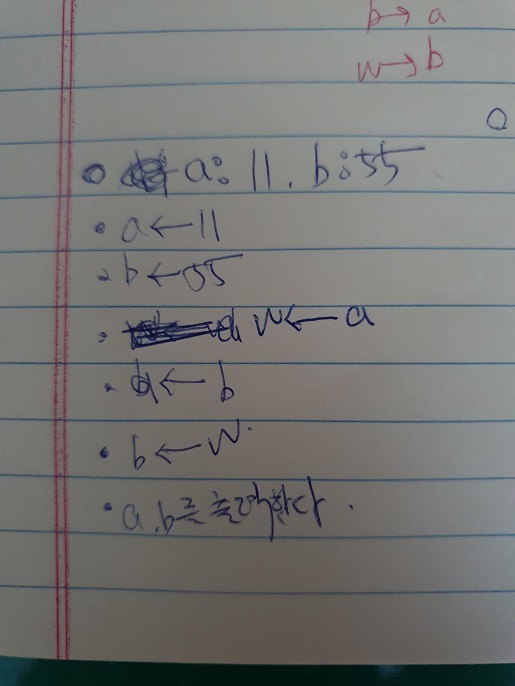 b→a
w→b
○ a: 11. b: 55
• a←11
• b←55
• w←a
• a←b
• b←w.
• a.b를 출력한다.